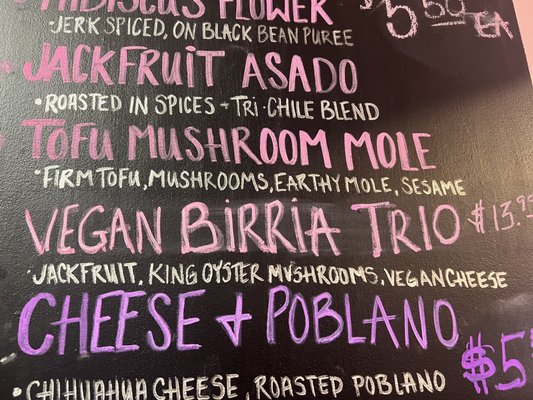 HIBISCUS FLOWER $5.50 EA
·JERK SPICED, ON BLACK BEAN PUREE
JACKFRUIT ASADO
•ROASTED IN SPICES + TRI-CHILE BLEND
TOFU MUSHROOM MOLE
•FIRM TOFU, MUSHROOMS, EARTHY MOLE, SESAME
VEGAN BIRRIA TRIO $13.95
·JACKFRUIT, KING OYSTER MUSHROOMS, VEGAN CHEESE
CHEESE + POBLANO $5
•CHIHUAHUA CHEESE, ROASTED POBLANO